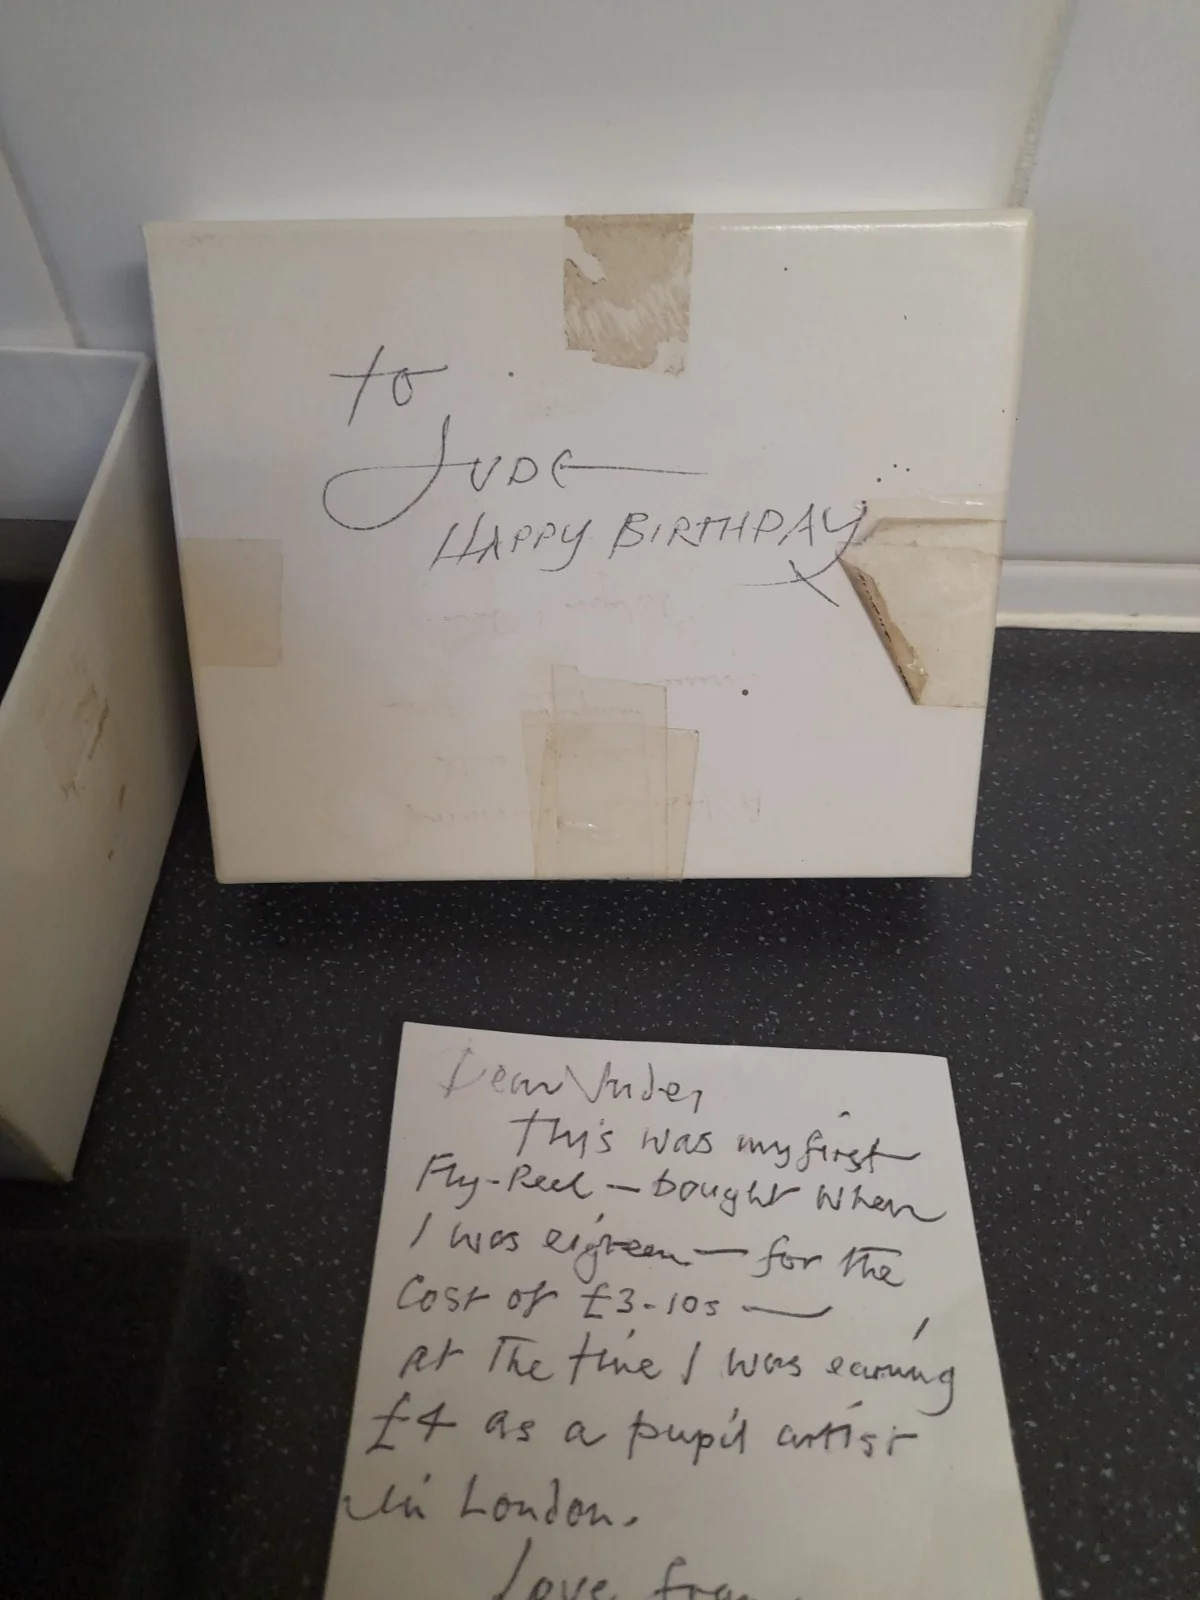 to
JUDE
HAPPY BIRTHDAY
Dear Jude,
This was my first
Fly-Reel — bought when
I was eigteen — for the
Cost of £3-10s —
at the time I was earning
£4 as a pupil artist
in London.
Love from